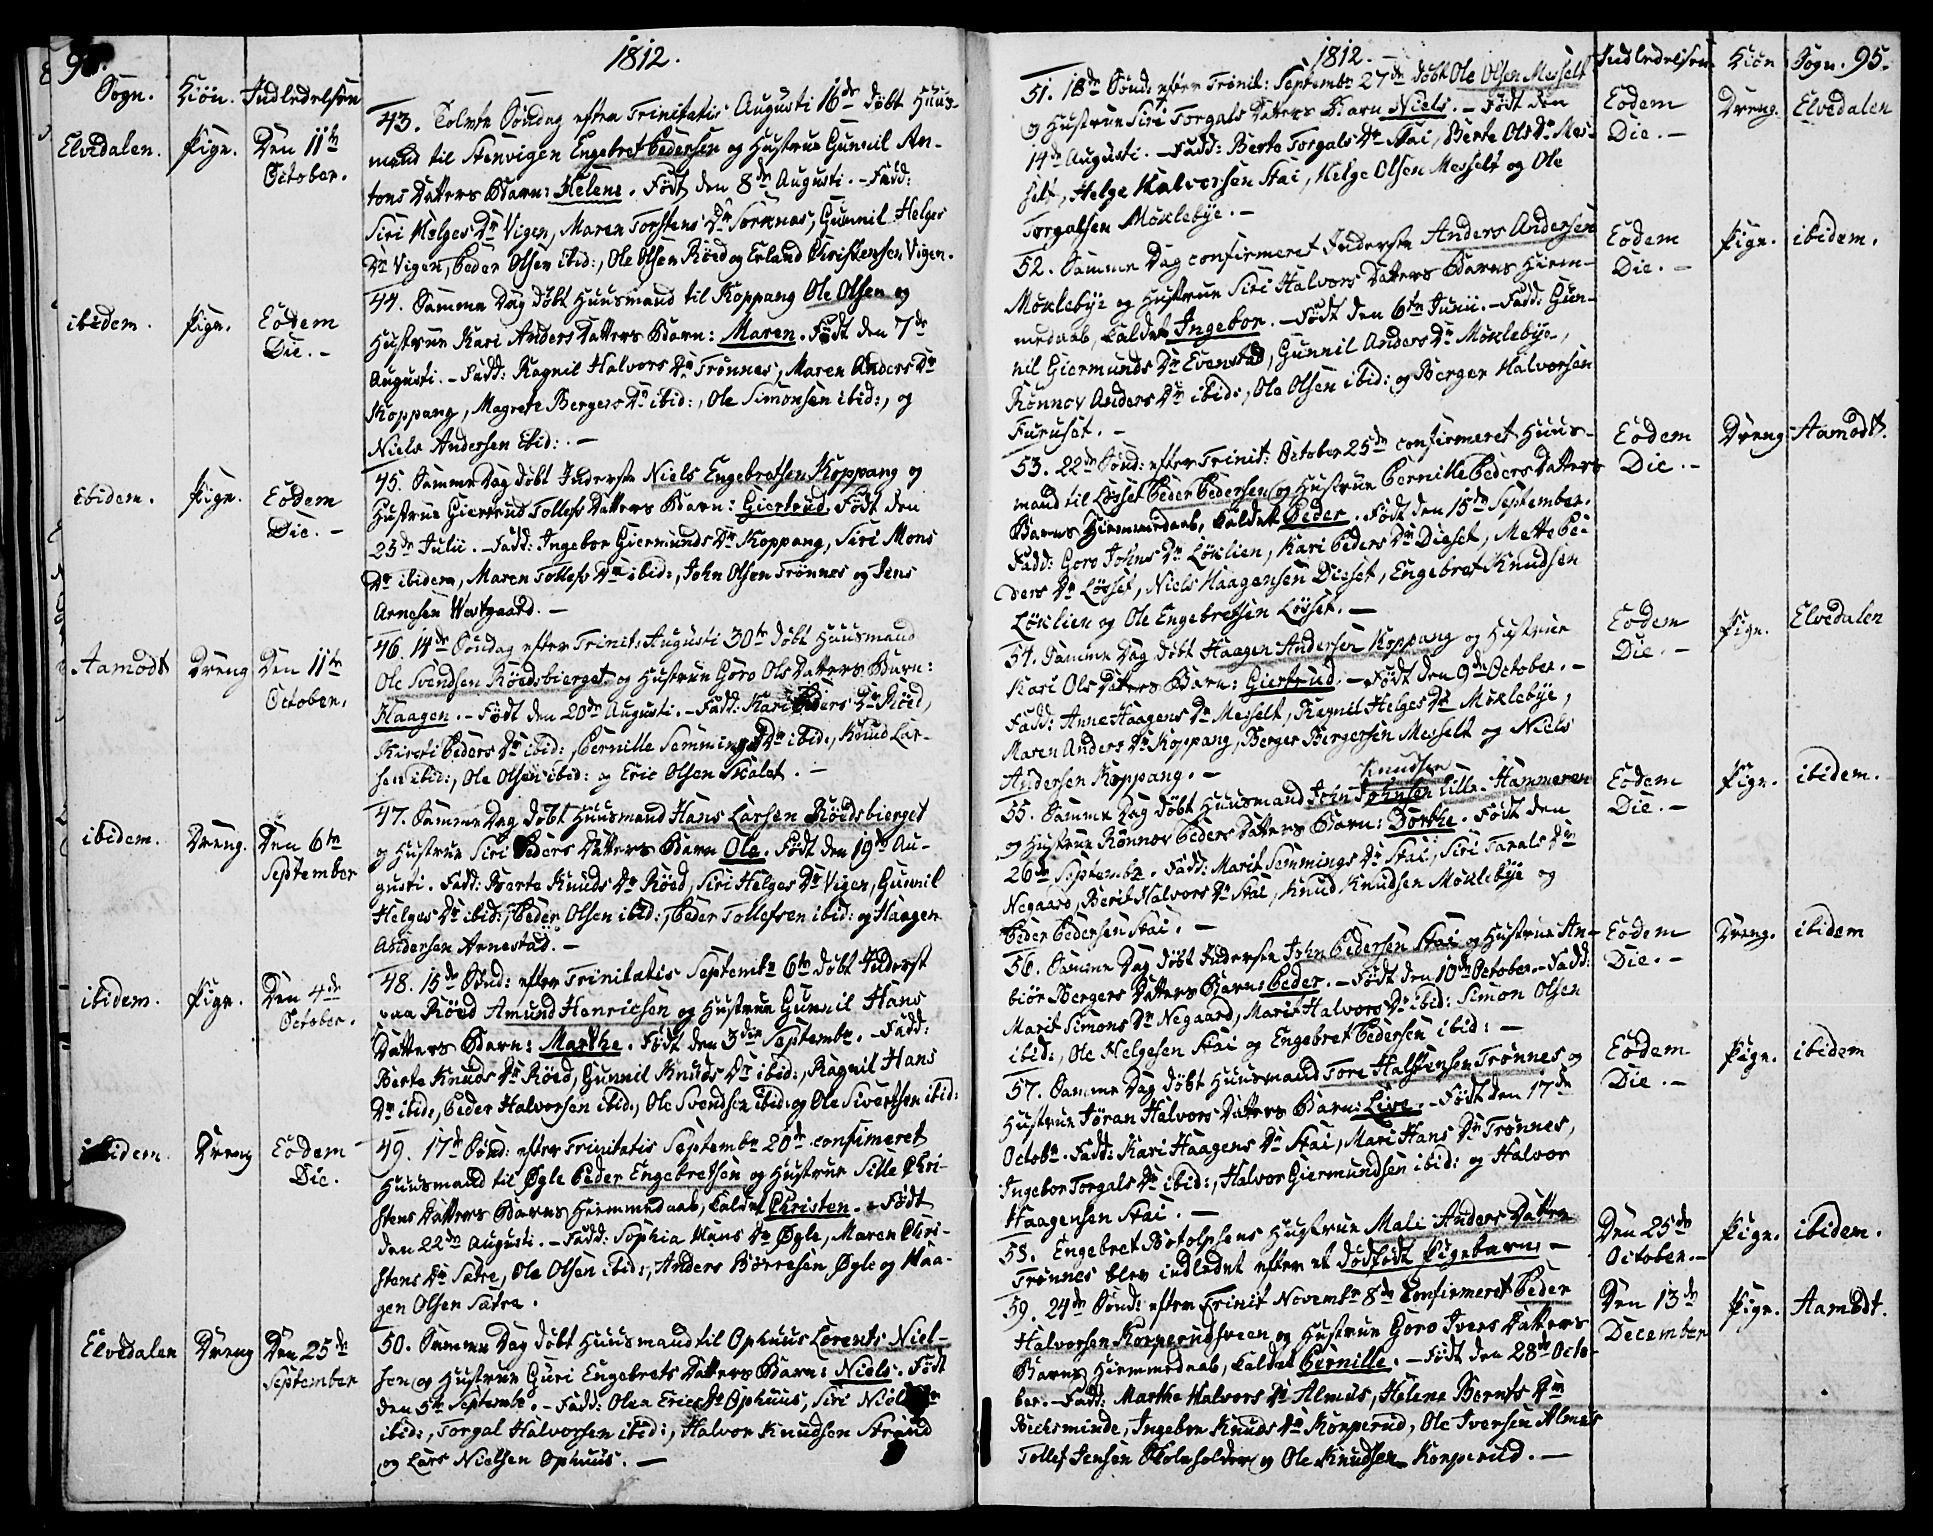 1812.
Sogn. Kiön. Indledelsen
43. Tolvte Söndag efter Trinitatis Augusti 16de döbt Huus-
Elvedalen. Pige. Den 11te October.
mand til Stenvigen Engebret Pedersen og Hustrue Gunnil An-
tons Datters Barn: Helene. Født den 8de Augusti. - Fadd:
Siri Helges Dr Vigen, Maren Torstens Dr Sornnes, Gunnil Helges
Dr Vigen, Peder Olsen ibid:, Ole Olsen Röed og Erland Christensen Vigen.
ibidem. Pige. Eodem Die. -
44. Samme Dag döbt Huusmand til Koppang Ole Olsen og
Hustrue Kari Anders Datters Barn: Maren. Født den 7de
Augusti. - Fadd: Ragnil Halvors Dr Trønnes, Maren Anders Dr
Koppang, Magrete Bergers Dr ibid:, Ole Simonsen ibid:, og
Niels Andersen ibid:. -
ibidem. Pige. Eodem Die. -
45. Samme Dag döbt Inderste Niels Engebretsen Koppang og
Hustrue Giertrud Tollefs Datters Barn: Giertrud. Født den
23de Julii. - Fadd: Ingebor Giermunds Dr Koppang, Siri Mons
Dr ibidem, Maren Tollefs Dr ibid:, John Olsen Trønnes og Jens
Arnesen Westgaard. -
Aamodt Dreng Den 11te October.
46. 14de Söndag efter Trinit: Augusti 30te döbt Huusmand
Ole Svendsen Röedsbierget og Hustrue Goro Ols Datters Barn:
Haagen. - Født den 20de Augusti. - Fadd: Kari Peders Dr Röed,
Kirsti Peders Dr ibid:, Pernille Semmings Dr ibid:, Knud Lar-
sen ibid:, Ole Olsen ibid: og Eric Olsen Skalet. -
ibidem. Dreng. Den 6te September
47. Samme Dag döbt Huusmand Hans Larsen Röedsbierget
og Hustrue Siri Peders Datters Barn Ole. Født den 19de Au-
gusti. Fadd: Berte Knuds Dr Röed, Siri Helges Dr Vigen, Gunnil
Helges Dr ibid:, Peder Olsen ibid:, Peder Tollefsen ibid: og Haagen
Andersen Arnestad. -
ibidem. Pige. Den 4de October.
48. 15de Sönd: efter Trinitatis Septembr 6te döbt Inderst
paa Röed Amund Henricsen og Hustrue Gunnil Hans
Datters Barn: Marthe. Født den 3die Septembr. - Fadd:
Berte Knuds Dr Röed, Gunnil Knuds Dr ibid:, Ragnil Hans
Dr ibid:, Peder Halvorsen ibid:, Ole Svendsen ibid: og Ole Sivertsen ibid:
ibidem. Dreng Eodem Die.
49. 17de Sönd: efter Trinitatis Septembr 20de confimeret
Huusmand til Øgle Peder Engebretsen og Hustrue Sille Chri-
stens Datters Barns Hiemmedaab, kaldet Christen. - Født
den 22de Augusti. - Fadd: Sophia Hans Dr Øgle, Maren Chri-
stens Dr Sætre, Ole Olsen ibid:, Anders Börresen Øgle og Haa-
gen Olsen Sætre.
Elvedalen Dreng Den 25de September
50. Samme Dag döbt Huusmand til Ophuus Lorents Niel-
sen og Hustrue Guri Engebrets Datters Barn: Niels. Født
den 5te Septembr. - Fadd: Olea Erics Dr Ophuus, Siri Niels
ibid:, Torgal Halvorsen ibid:, Halvor Knudsen Strand
og Lars Nielsen Ophuus. -
1812. Indledelsen Kiön Sogn. 95.
51. 18de Sönd: efter Trinit: Septembr 27de döbt Ole Olsen Messelt
og Hustrue Siri Torgals Datters Barn Niels. - Født den
Eodem Die. - Dreng. Elvedalen
14de Augusti. - Fadd: Berte Torgals Dr Stai, Berte Ols Dr Mes-
selt, Helge Halvorsen Stai, Helge Olsen Messelt og Ole
Torgalsen Møklebye. -
52. Samme Dag confirmeret Inderste Anders Andersen
Eodem Die. - Pige. ibidem.
Møklebye og Hustrue Siri Halvors Datters Barns Hiem-
medaab, kaldet Ingebor. - Født den 6te Junii. - Fadd: Gun-
nil Giermunds Dr Evenstad, Gunnil Anders Dr Møklebye,
Rønnov Anders Dr ibid:, Ole Olsen ibid: og Berger Halvorsen
Furuset. -
53. 22de Sönd: efter Trinit: October 25de confirmeret Huus-
Eodem Die. - Dreng Aamodt.
mand til Løsset Peder Pedersen og Hustrue Pernille Peders Datters
Barns Hiemmedaab, kaldet Peder. Født den 15de September.
Fadd: Goro Johns Dr Løklien, Kari Peders Dr Dieset, Mette Pe-
ders Dr Løsset, Niels Haagensen Dieset, Engebret Knudsen
Løklien og Ole Engebretsen Løsset. -
54. Samme Dag döbt Haagen Andersen Koppang og Hustrue
Eodem Die. - Pige. Elvedalen
Kari Ols Datters Barn: Giertrud. - Født den 9de October. -
Fadd: Anne Haagens Dr Messelt, Ragnil Helges Dr Møklebye,
Maren Anders Dr Koppang, Berger Bergersen Messelt og Niels
Andersen Koppang. -
Knudsen
55. Samme Dag döbt Huusmand John Johnsen lille-Hammeren
Eodem Die. - Pige. ibidem.
og Hustrue Rønnov Peders Datters Barn: Dorthe. Født den
26de Septembr. Fadd: Marit Semmings Dr Stai, Siri Tarals Dr
Negaard, Berit Halvors Dr Stai, Knud Knudsen Møklebye og
Peder Pedersen Stai. -
56. Samme Dag döbt Inderste John Pedersen Stai og Hustrue An-
Eodem Die. - Dreng. ibidem
biör Bergers Datters Barn: Peder. - Født den 10de October. - Fadd:
Marit Simons Dr Negaard, Marit Halvors Dr ibid: Simon Olsen
ibid:, Ole Helgesen Stai og Engebret Pedersen ibid: -
57. Samme Dag döbt Huusmand Tore Halstensen Trønnes og
Eodem Die. - Pige. ibidem
Hustrue Jøran Halvors Datters Barn: Live. - Født den 17de
Octobr. Fadd: Kari Haagens Dr Stai, Mari Hans Dr Trønnes,
Ingebor Torgals Dr ibid:, Halvor Giermundsen ibid: og Halvor
Haagensen Stai. -
58. Engebret Botolphsens Hustrue Mali Anders Datter
Den 25de October. - Pige. ibidem.
Trønnes blev indledet efter et dødfödt Pigebarn. -
59. 24de Sönd: efter Trinit Novembr 8de Confirmeret Peder
Den 13de December Pige. Aamodt.
Halvorsen Korperudsveen og Hustrue Goro Ivers Datters
Barns Hiemmedaab, kaldet Pernille. - Født den 28de Octo-
ber. - Fadd: Marthe Halvors Dr Almus, Helene Bernts Dr
Becksminde, Ingebor Knuds Dr Korperud, Ole Iversen Almus
Tollef Jensen Skoleholder og Ole Knudsen Korperud. -